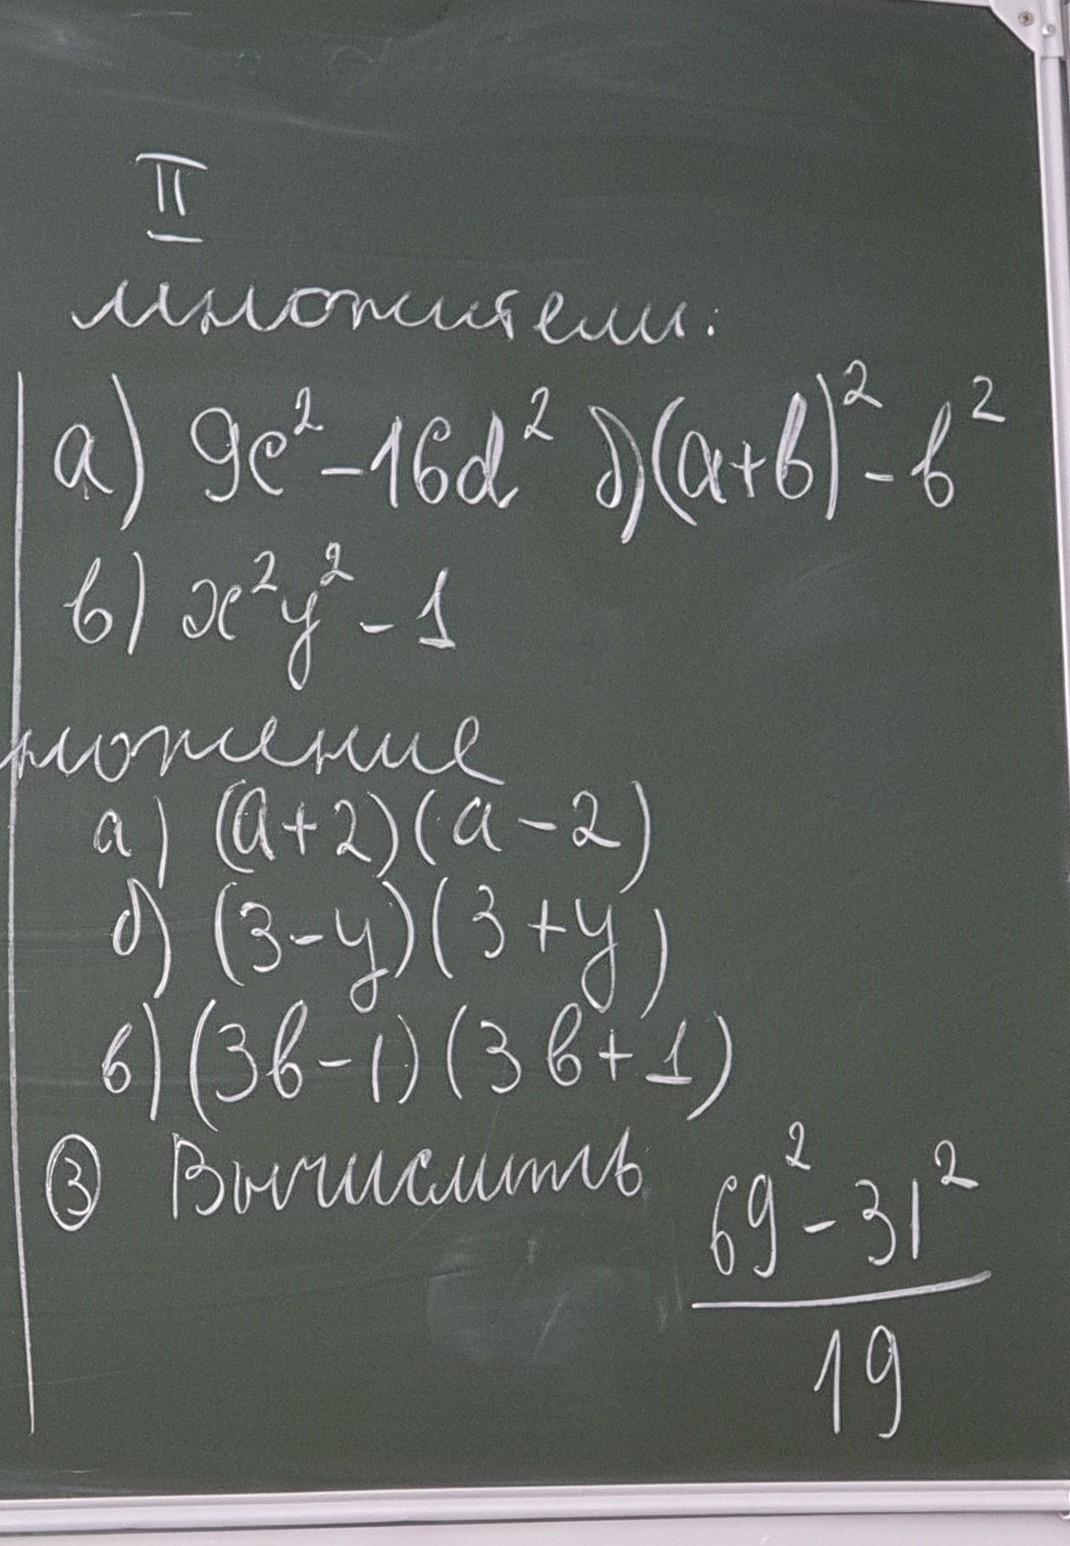 II
множители:
а) 9c² - 16d² б) (a+b)² - b²
в) x²y² - 1
ножение
а) (a+2)(a-2)
б) (3-y)(3+y)
в) (3b-1)(3b+1)
③ Вычислить (69² - 31²)/19